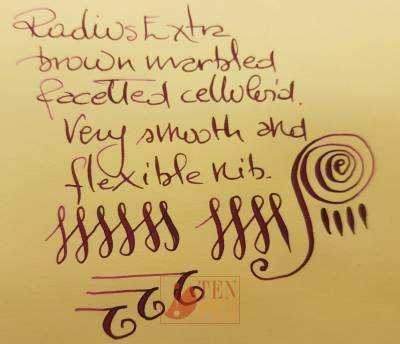 Radius Extra
brown marbled
facetted celluloid.
Very smooth and
flexible nib.
TEN